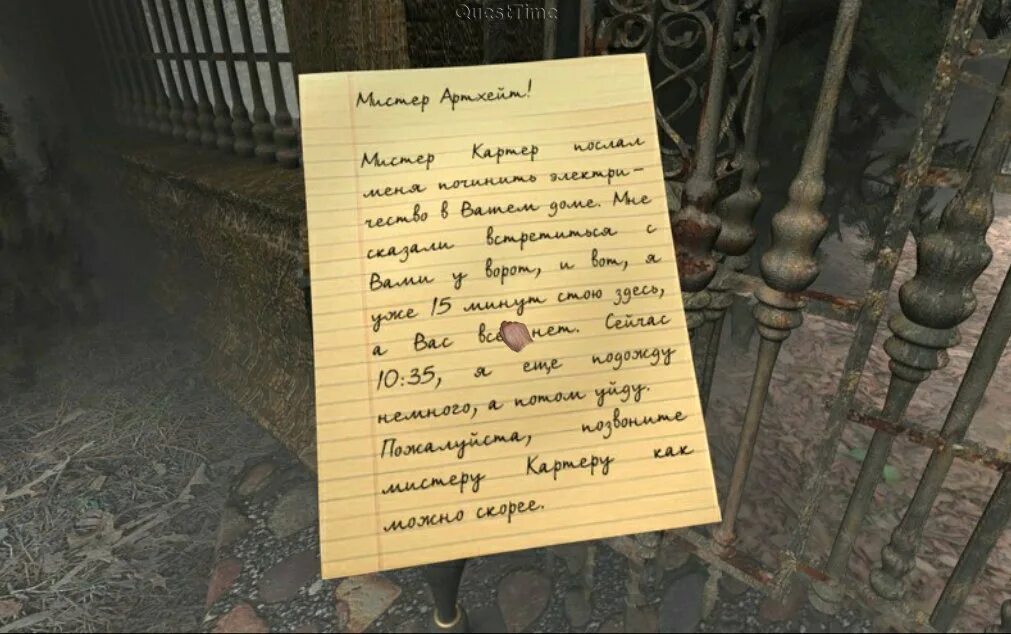 QuestTime
Мистер Артхейт!
Мистер Картер послал
меня починить электри-
чество в Вашем доме. Мне
сказали встретиться с
Вами у ворот, и вот, я
уже 15 минут стою здесь,
а Вас все нет. Сейчас
10:35, я еще подожду
немного, а потом уйду.
Пожалуйста, позвоните
мистеру Картеру как
можно скорее.